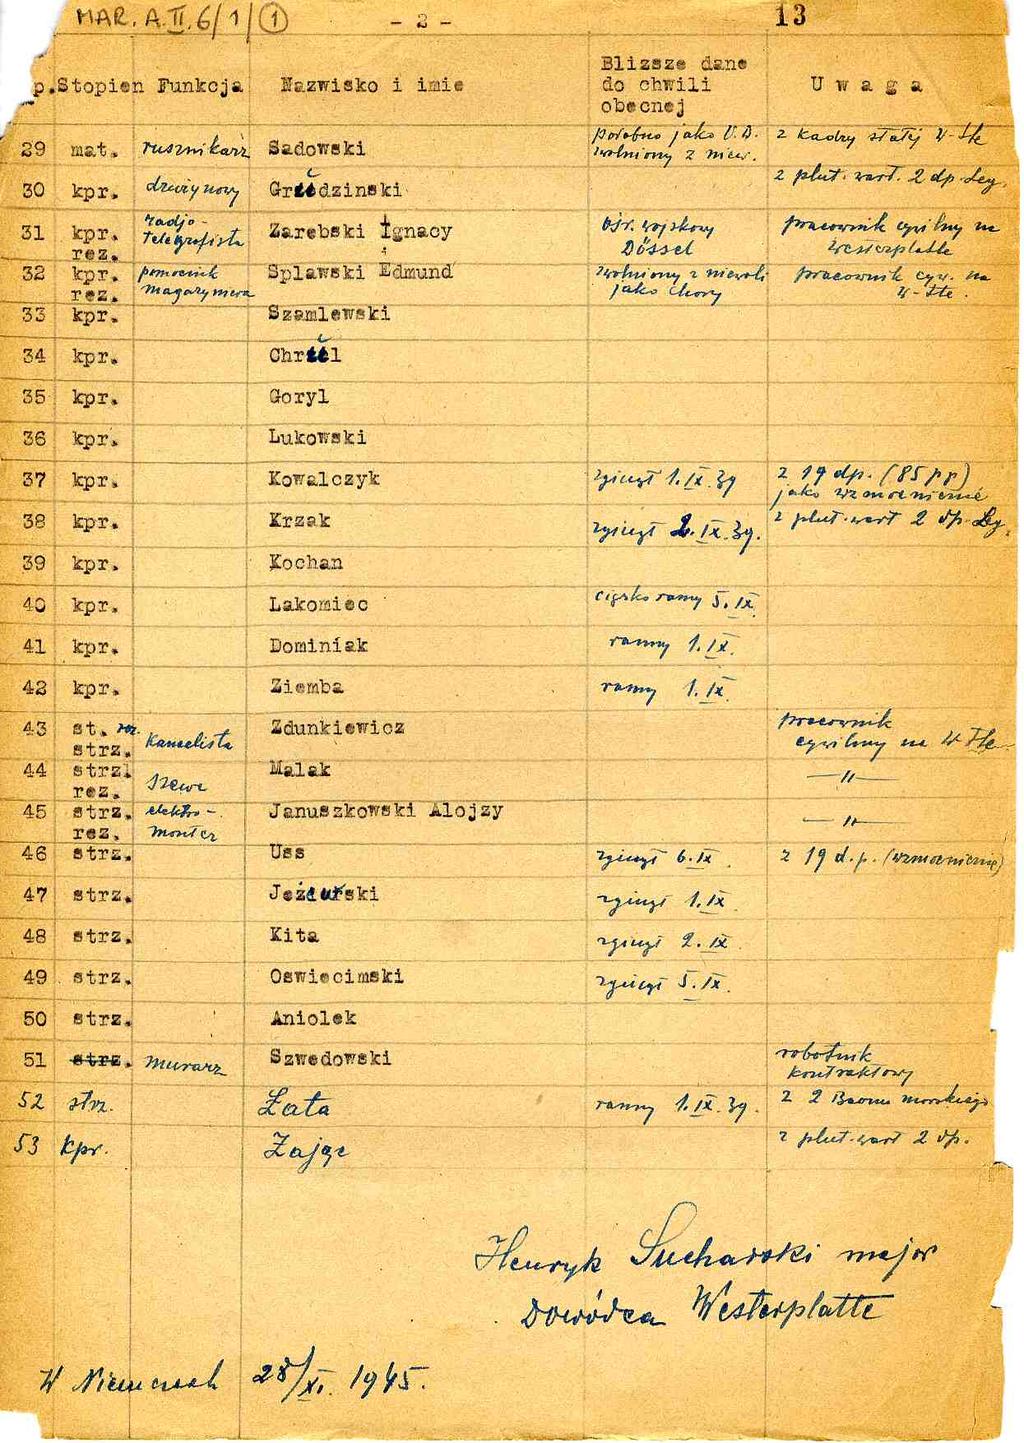 MAR. A. II. 6/1/①
- 2 -
13
p. Stopien Funkcja Nazwisko i imie Blizsze dane do chwili obecnej U w a g a
29 mat. rusznikarz Sadowski podobno jako V.D. zwolniony z niew. z kadry stałej W-tte
30 kpr. drużynowy Grudzinski z plut. wart. 2 dp. Leg.
31 kpr. rez. radjo-telegrafista Zarebski Ignacy Ośr. wojskowy Dössel pracownik cywilny na Westerplatte
32 kpr. rez. pomocnik magazyniera Splawski Edmund zwolniony z niewoli jako chory pracownik cyw. na W-tte.
33 kpr. Szamlewski
34 kpr. Chrul
35 kpr. Goryl
36 kpr. Lukowski
37 kpr. Kowalczyk zginął 1.IX.39 z 19 dp. (85 pp) jako wzmocnienie
38 kpr. Krzak zginął 2.IX.39. z plut. wart 2 dp. Leg.
39 kpr. Kochan
40 kpr. Lakomiec ciężko ranny 5.IX.
41 kpr. Dominiak ranny 1.IX.
42 kpr. Ziemba ranny 1.IX.
43 st. rez. strz. kancelista Zdunkiewicz pracownik cywilny na W-tte
44 strz. rez. szewc Malak —"—
45 strz. rez. elektro-monter Januszkowski Alojzy —"—
46 strz. Uss zginął 6.IX. z 19 d.p. (wzmocnienie)
47 strz. Jezierski zginął 1.IX.
48 strz. Kita zginął 2.IX.
49 strz. Oswiecimski zginął 5.IX.
50 strz. Aniolek
51 strz. murarz Szwedowski robotnik kontraktowy
52 strz. Łata ranny 1.IX.39. z 2 Baonu morskiego
53 kpr. Zając z plut. wart 2 dp.
Henryk Sucharski major
Dowódca Westerplatte
W Niemczech 28/XI. 1945.